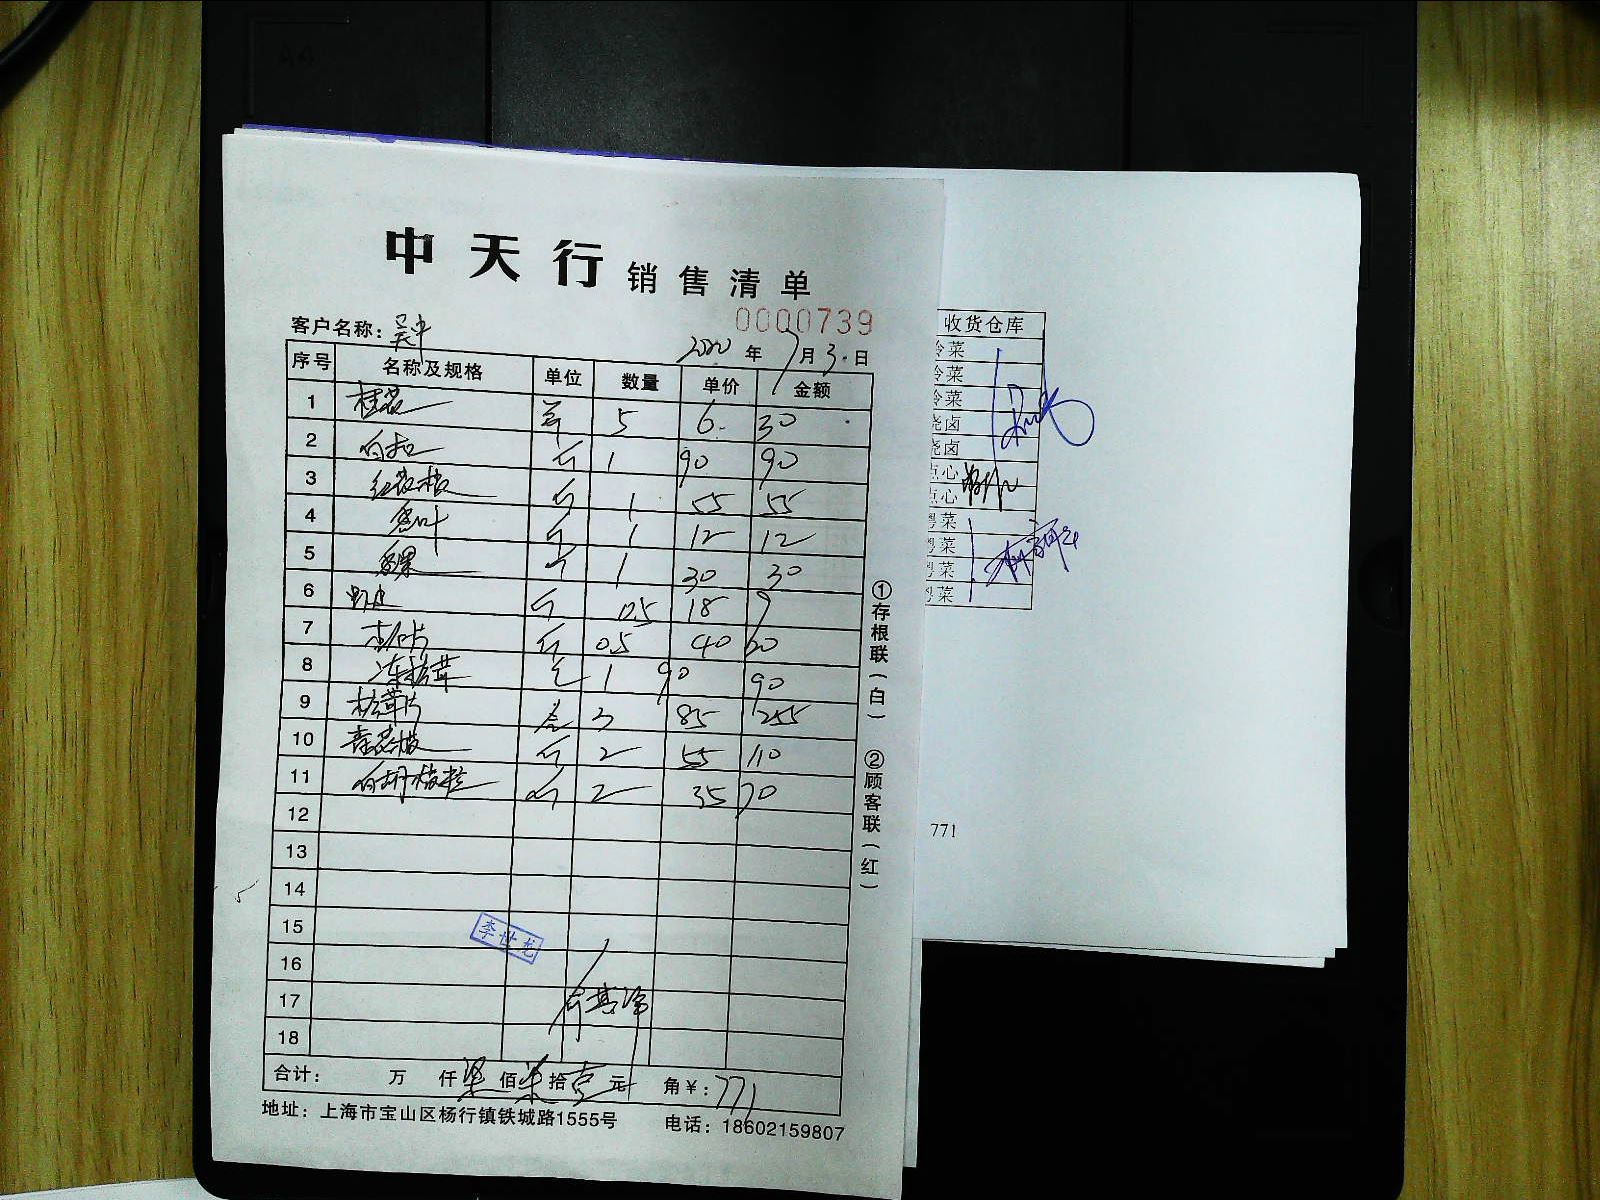 中天行 销售清单
0000739
客户名称：吴中
2020年7月3日
序号 名称及规格 单位 数量 单价 金额
1 桂花 5 6 30
2 白扣 斤 1 90 90
3 红花椒 斤 1 55 55
4 香叶 斤 1 12 12
5 斤 1 30 30
6 虾皮 斤 0.5 18 9
7 斤 0.5 40 20
8 冻松茸 1 90 90
9 松茸片 3 85 255
10 青花椒 斤 2 55 110
11 白胡椒粒 斤 2 35 70
12
13
14
15
16
17
18
李世龙
合计： 万 仟 柒佰 柒拾 壹元 角¥：771
地址：上海市宝山区杨行镇铁城路1555号 电话：18602159807
①存根联（白） ②顾客联（红）
收货仓库
冷菜
冷菜
冷菜
烧卤
烧卤
点心
点心
粤菜
粤菜
粤菜
粤菜
771